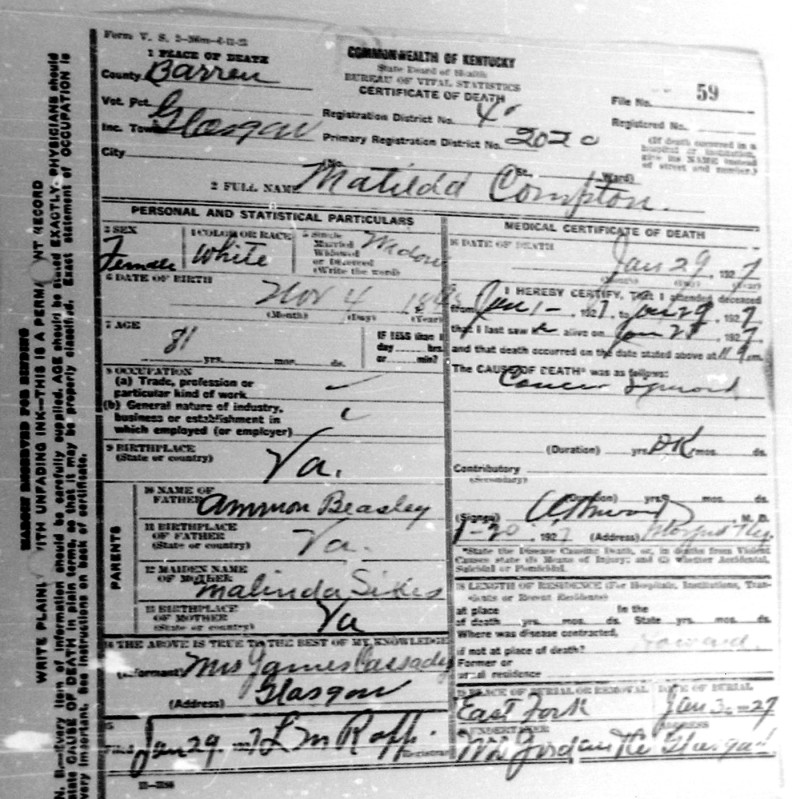 Form V. S.
COMMONWEALTH OF KENTUCKY
State Board of Health
BUREAU OF VITAL STATISTICS
CERTIFICATE OF DEATH
1 PLACE OF DEATH
County Barren
Vot. Pct. Glasgow
Inc. Town
City
Registration District No. 4
Primary Registration District No. 2020
File No. 59
Registered No.
(If death occurred in a
hospital or institution,
give its NAME instead
of street and number.)
(No. St., Ward)
2 FULL NAME Matilda Compton.
PERSONAL AND STATISTICAL PARTICULARS
3 SEX
Female
4 COLOR OR RACE
White
5 Single
Married
Widowed
or Divorced
(Write the word)
Widow
6 DATE OF BIRTH
Nov 4
(Month) (Day) (Year)
7 AGE
81
yrs. mos. ds.
IF LESS than 1
day hrs.
or min?
8 OCCUPATION
(a) Trade, profession or
particular kind of work
(b) General nature of industry,
business or establishment in
which employed (or employer)
9 BIRTHPLACE
(State or country)
Va.
PARENTS
10 NAME OF
FATHER
Ammon Beasley
11 BIRTHPLACE
OF FATHER
(State or country)
Va.
12 MAIDEN NAME
OF MOTHER
Malinda Sikes
13 BIRTHPLACE
OF MOTHER
(State or country)
Va
14 THE ABOVE IS TRUE TO THE BEST OF MY KNOWLEDGE
(Informant) Mrs James Cassady
(Address) Glasgow
15
Filed Jan 29 192 7 L M Raff
Registrar
MEDICAL CERTIFICATE OF DEATH
16 DATE OF DEATH
Jan 29, 192 7
(Month) (Day) (Year)
I HEREBY CERTIFY, That I attended deceased
from Jan 1- 192 7, to Jan 29, 192 7
that I last saw h alive on Jan 28 192 7
and that death occurred on the date stated above at m.
The CAUSE OF DEATH* was as follows:
Cancer
(Duration) yrs. DK mos. ds.
Contributory
(Secondary)
(Duration) yrs. mos. ds.
(Signed) M. D.
192 7 (Address)
*State the Disease Causing Death, or, in deaths from Violent
Causes state (1) Means of Injury; and (2) whether Accidental,
Suicidal or Homicidal.
18 LENGTH OF RESIDENCE (For Hospitals, Institutions, Transients
or Recent Residents)
at place In the
of death yrs. mos. ds. State yrs. mos. ds.
Where was disease contracted,
if not at place of death?
Former or
usual residence
19 PLACE OF BURIAL OR REMOVAL DATE OF BURIAL
East Fork Jan 30 -27
20 UNDERTAKER ADDRESS
Glasgow
MARGIN RESERVED FOR BINDING
WRITE PLAINLY WITH UNFADING INK—THIS IS A PERMANENT RECORD
N. B.—Every item of information should be carefully supplied. AGE should be stated EXACTLY. PHYSICIANS should
state CAUSE OF DEATH in plain terms, so that it may be properly classified. Exact statement of OCCUPATION is
very important. See instructions on back of certificate.